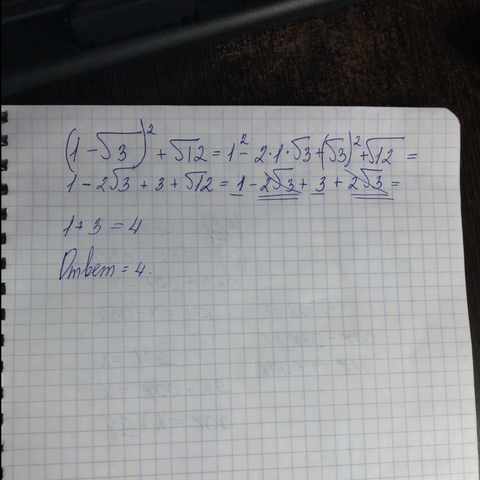 (1 - √3)² + √12 = 1² - 2·1·√3 + (√3)² + √12 =
1 - 2√3 + 3 + √12 = 1 - 2√3 + 3 + 2√3 =
1 + 3 = 4
Ответ = 4.